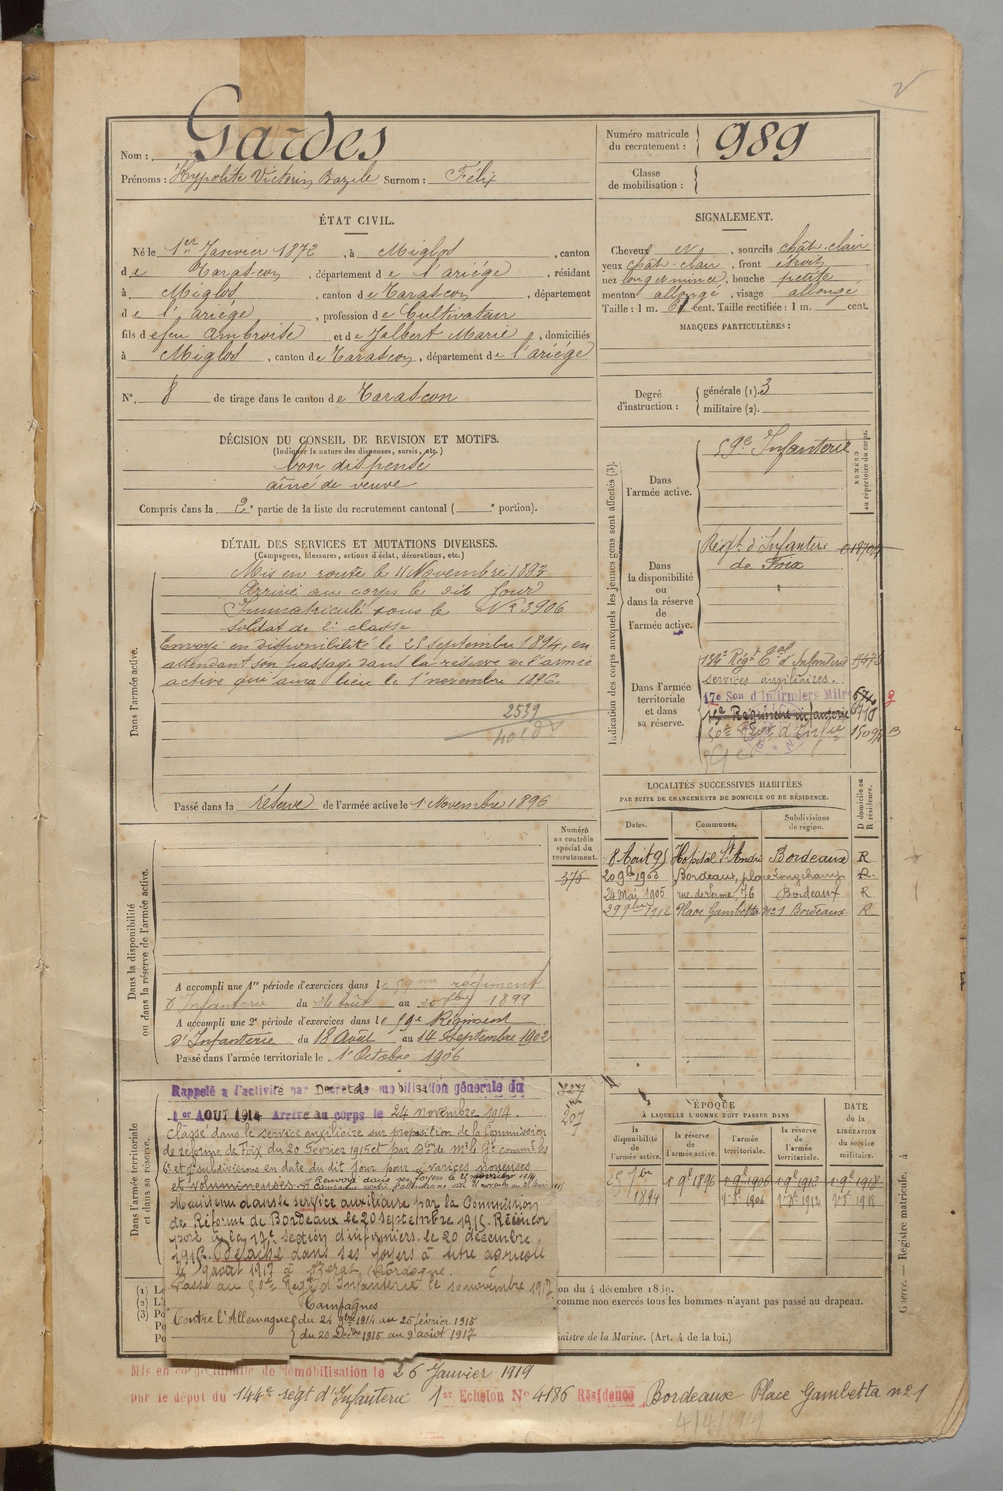 Nom : Gardes
Prénoms : Hyppolite Victorin Bazile Surnom : Félix
Numéro matricule du recrutement : 989
Classe de mobilisation :
ÉTAT CIVIL.
Né le 1er Janvier 1872, à Miglos, canton
de Tarascon, département de l'ariége, résidant
à Miglos, canton de Tarascon, département
de l'ariége, profession de Cultivateur
fils de feu Ambroise et de Jalbert Marie, domiciliés
à Miglos, canton de Tarascon, département de l'ariége
N° 8 de tirage dans le canton de Tarascon
SIGNALEMENT.
Cheveux, sourcils chât-clair
yeux chât-clair, front étroit
nez long et mince, bouche petite
menton allongé, visage allongé
Taille : 1 m. cent. Taille rectifiée : 1 m. cent.
MARQUES PARTICULIÈRES :
Degré d'instruction : générale (1). 3
militaire (2).
DÉCISION DU CONSEIL DE REVISION ET MOTIFS.
(Indiquer la nature des dispenses, sursis, etc.)
bon dispensé
aîné de veuve
Compris dans la 2e partie de la liste du recrutement cantonal ( e portion).
DÉTAIL DES SERVICES ET MUTATIONS DIVERSES.
(Campagnes, blessures, actions d'éclat, décorations, etc.)
Dans l'armée active.
Mis en route le 11 Novembre 1893
Arrivé au corps le dit jour
Immatriculé sous le N° 3906
soldat de 2e classe
Envoyé en disponibilité le 25 septembre 1894, en
attendant son passage dans la réserve de l'armée
active qui aura lieu le 1er novembre 1896.
2539
Passé dans la réserve de l'armée active le 1 Novembre 1896
Indication des corps auxquels les jeunes gens sont affectés (3).
NUMÉRO au répertoire du corps.
Dans l'armée active.
59e Infanterie
Dans la disponibilité ou dans la réserve de l'armée active.
Régt d'Infanterie
de Foix
Dans l'armée territoriale et dans sa réserve.
134e Régt Tal d'Infanterie
services auxiliaires.
17e Son d'Infirmiers Milres
LOCALITÉS SUCCESSIVES HABITÉES
PAR SUITE DE CHANGEMENTS DE DOMICILE OU DE RÉSIDENCE.
Dates. Communes. Subdivisions de région. D domicile ou R résidence.
8 Août 95 Hopital St André Bordeaux R
20 9bre 1900 Bordeaux, place Longchamps R.
24 Mai 1905 rue de Lerme, 76 Bordeaux R
29 9bre 1912 Place Gambetta N°1 Bordeaux R
Dans la disponibilité ou dans la réserve de l'armée active.
Numéro au contrôle spécial du recrutement.
375
A accompli une 1re période d'exercices dans le 59me régiment
d'Infanterie du 24 Août au 20 7bre 1899
A accompli une 2e période d'exercices dans le 59e Régiment
d'Infanterie du 18 Août au 14 Septembre 1902
Passé dans l'armée territoriale le 1er Octobre 1906
Dans l'armée territoriale et dans sa réserve.
Rappelé à l'activité par Décret de mobilisation générale du
1er AOUT 1914 Arrivé au corps le 24 novembre 1914.
207
Classé dans le service auxiliaire sur proposition de la Commission
de réforme de Foix du 20 Février 1915 et par Don de Mr le Gal commt les
subdivisions en date du dit jour pour varices noueuses
et volumineuses
Maintenu dans le service auxiliaire par la Commission
de Réforme de Bordeaux le 20 septembre 1915. Réincor
poré à la 17e section d'infirmiers le 20 décembre
1915. Détaché dans ses foyers à titre agricole
le 9 août 1917 à Dordogne.
Passé au Régt d'Infanterie le 10 novembre 1917.
Campagnes
Contre l'Allemagne du 24 9bre 1914 au 25 février 1915
du 20 Décbre 1915 au 9 août 1917
ÉPOQUE
À LAQUELLE L'HOMME DOIT PASSER DANS
la disponibilité de l'armée active. la réserve de l'armée active. l'armée territoriale. la réserve de l'armée territoriale.
DATE de la LIBÉRATION du service militaire.
25 7bre 1894 1 9e 1896 1 9e 1906 1 9e 1912 1 9e 1918
on du 4 décembre 1889.
comme non exercés tous les hommes n'ayant pas passé au drapeau.
inistre de la Marine. (Art. 4 de la loi.)
Guerre. — Registre matricule. 4
Mis en congé illimité de démobilisation le 26 Janvier 1919
par le dépot du 144e régt d'Infanterie 1er Echelon N° 4186 Résidence Bordeaux Place Gambetta n° 1